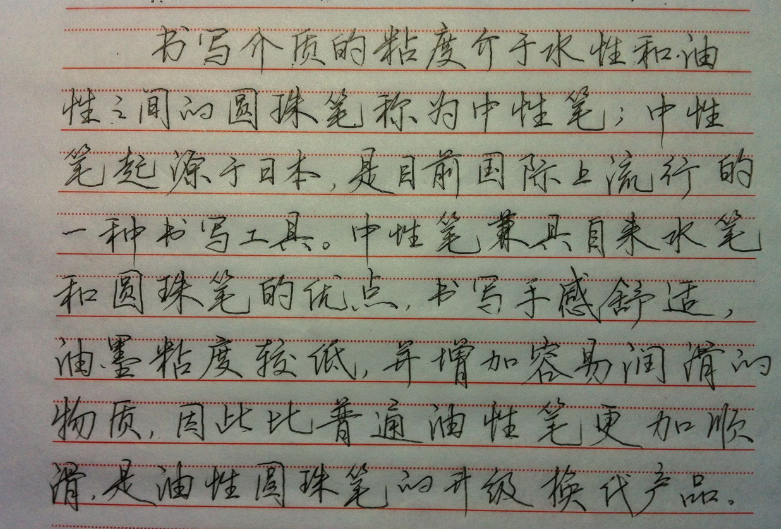 书写介质的粘度介于水性和油
性之间的圆珠笔称为中性笔；中性
笔起源于日本，是目前国际上流行的
一种书写工具。中性笔兼具自来水笔
和圆珠笔的优点，书写手感舒适，
油墨粘度较低，并增加容易润滑的
物质，因此比普通油性笔更加顺
滑，是油性圆珠笔的升级换代产品。